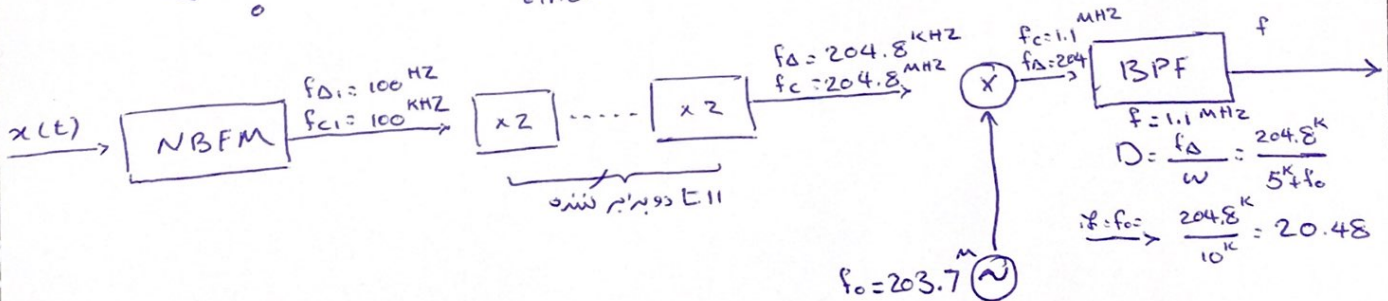 x(t)
NBFM
fΔ1 = 100 HZ
fc1 = 100 KHZ
x2 ..... x2
11 تا دو برابر کننده
fΔ = 204.8 KHZ
fc = 204.8 MHZ
x
f₀ = 203.7 M ~
fc = 1.1 MHZ
fΔ = 204
BPF
f
f = 1.1 MHZ
D = fΔ/W = 204.8K/5K+f₀
if = f₀ = → 204.8K/10K = 20.48